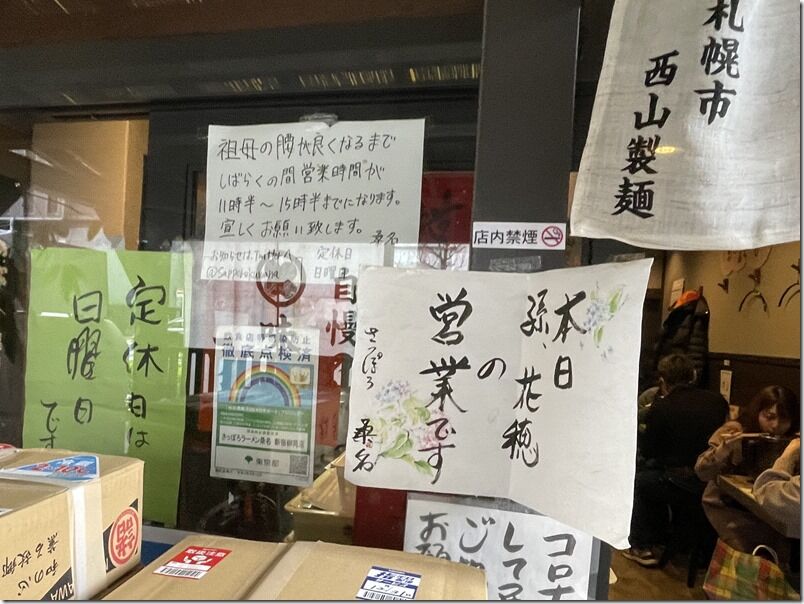 札幌市
西山製麺
祖母の腰が良くなるまで
しばらくの間営業時間が
11時半～15時半までになります。
宜しくお願い致します。
桑名
定休日
日曜日
店内禁煙
定休日は
日曜日
です
自慢の
徹底点検済
さっぽろラーメン桑名 新宿御苑店
東京都
本日
孫、花穂
の
営業です
さっぽろ
桑名
コロナ
して
ご
お願
和の心
薫る故郷